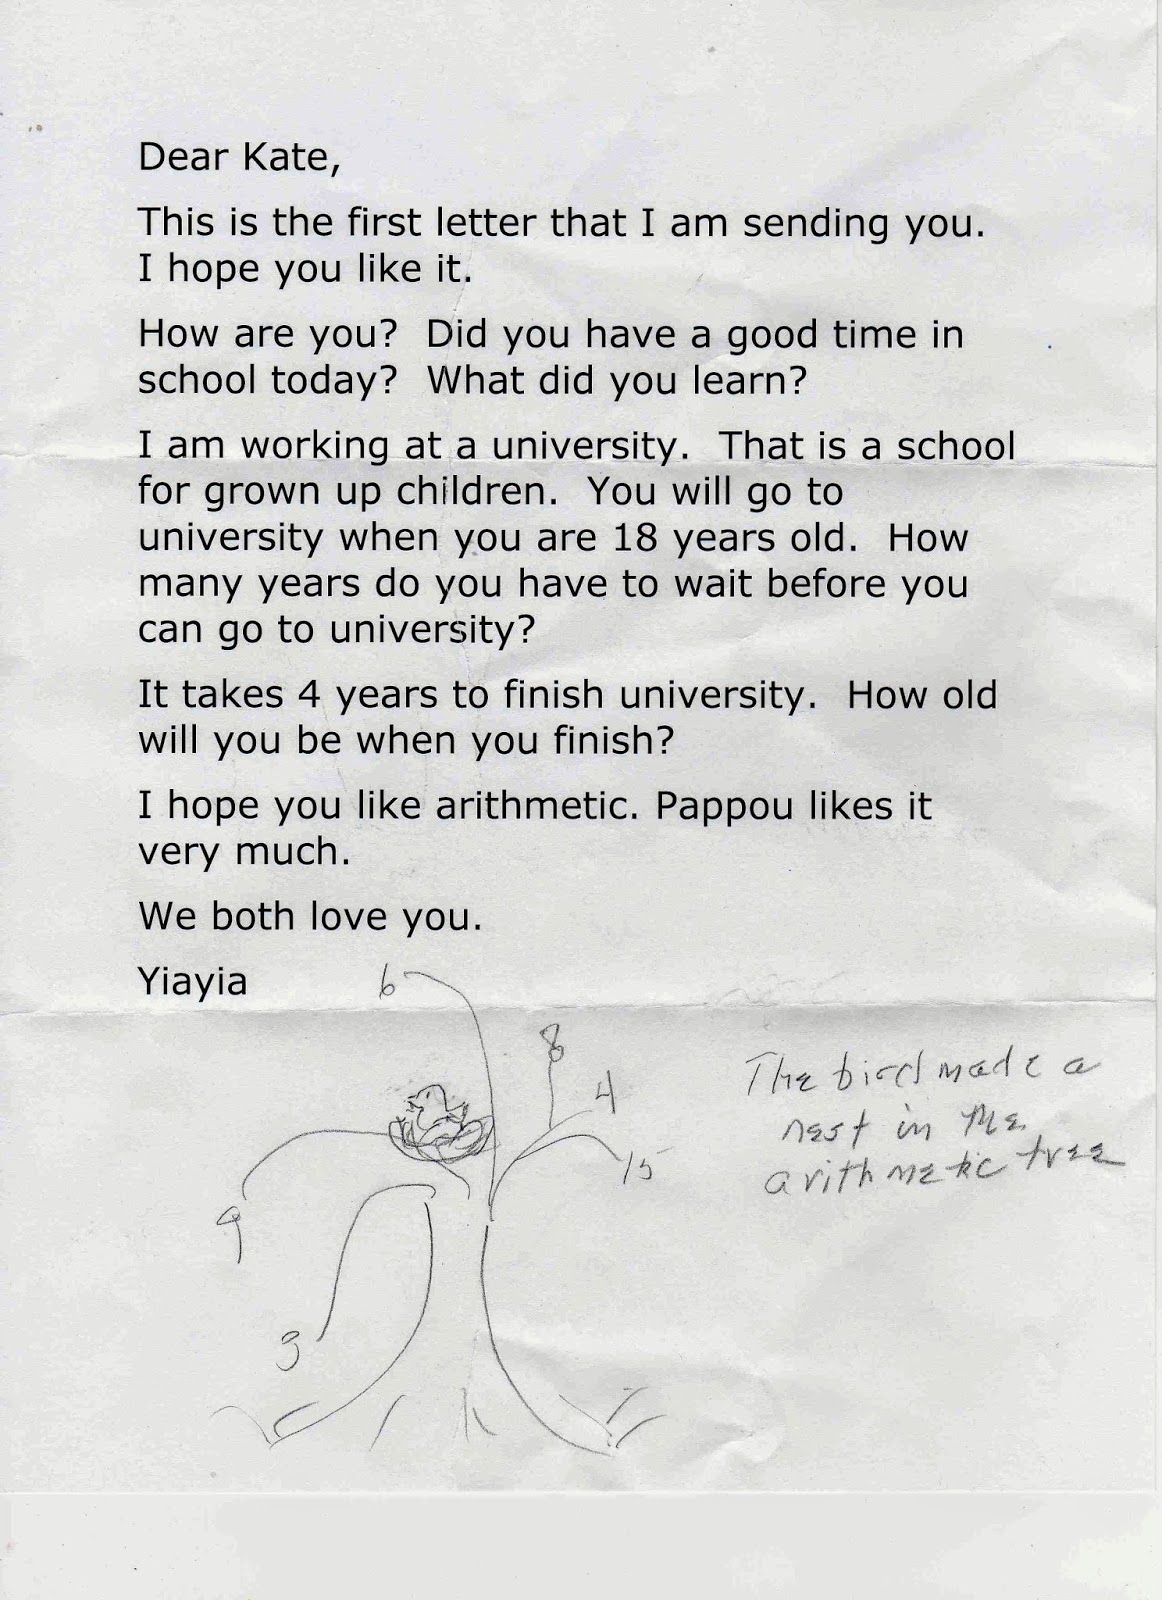 Dear Kate,
This is the first letter that I am sending you.
I hope you like it.
How are you?  Did you have a good time in
school today?  What did you learn?
I am working at a university.  That is a school
for grown up children.  You will go to
university when you are 18 years old.  How
many years do you have to wait before you
can go to university?
It takes 4 years to finish university.  How old
will you be when you finish?
I hope you like arithmetic. Pappou likes it
very much.
We both love you.
Yiayia
6
8
4
15
9
3
The bird made a
nest in the
arithmetic tree